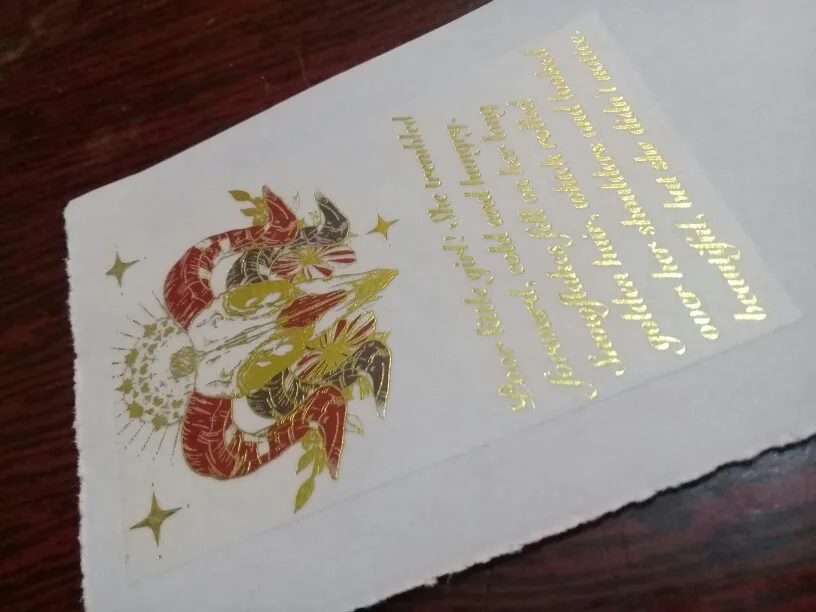 Poor little girl! She trembled
forward, cold and hungry.
Snowflakes fell on her long
golden hair, which rolled
over her shoulders and looked
beautiful, but she didn't notice.